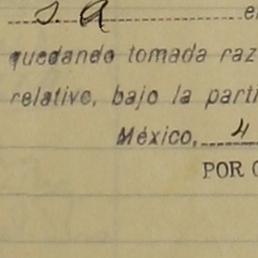 S. A
quedando tomada raz
relativo, bajo la parti
México, 4
POR